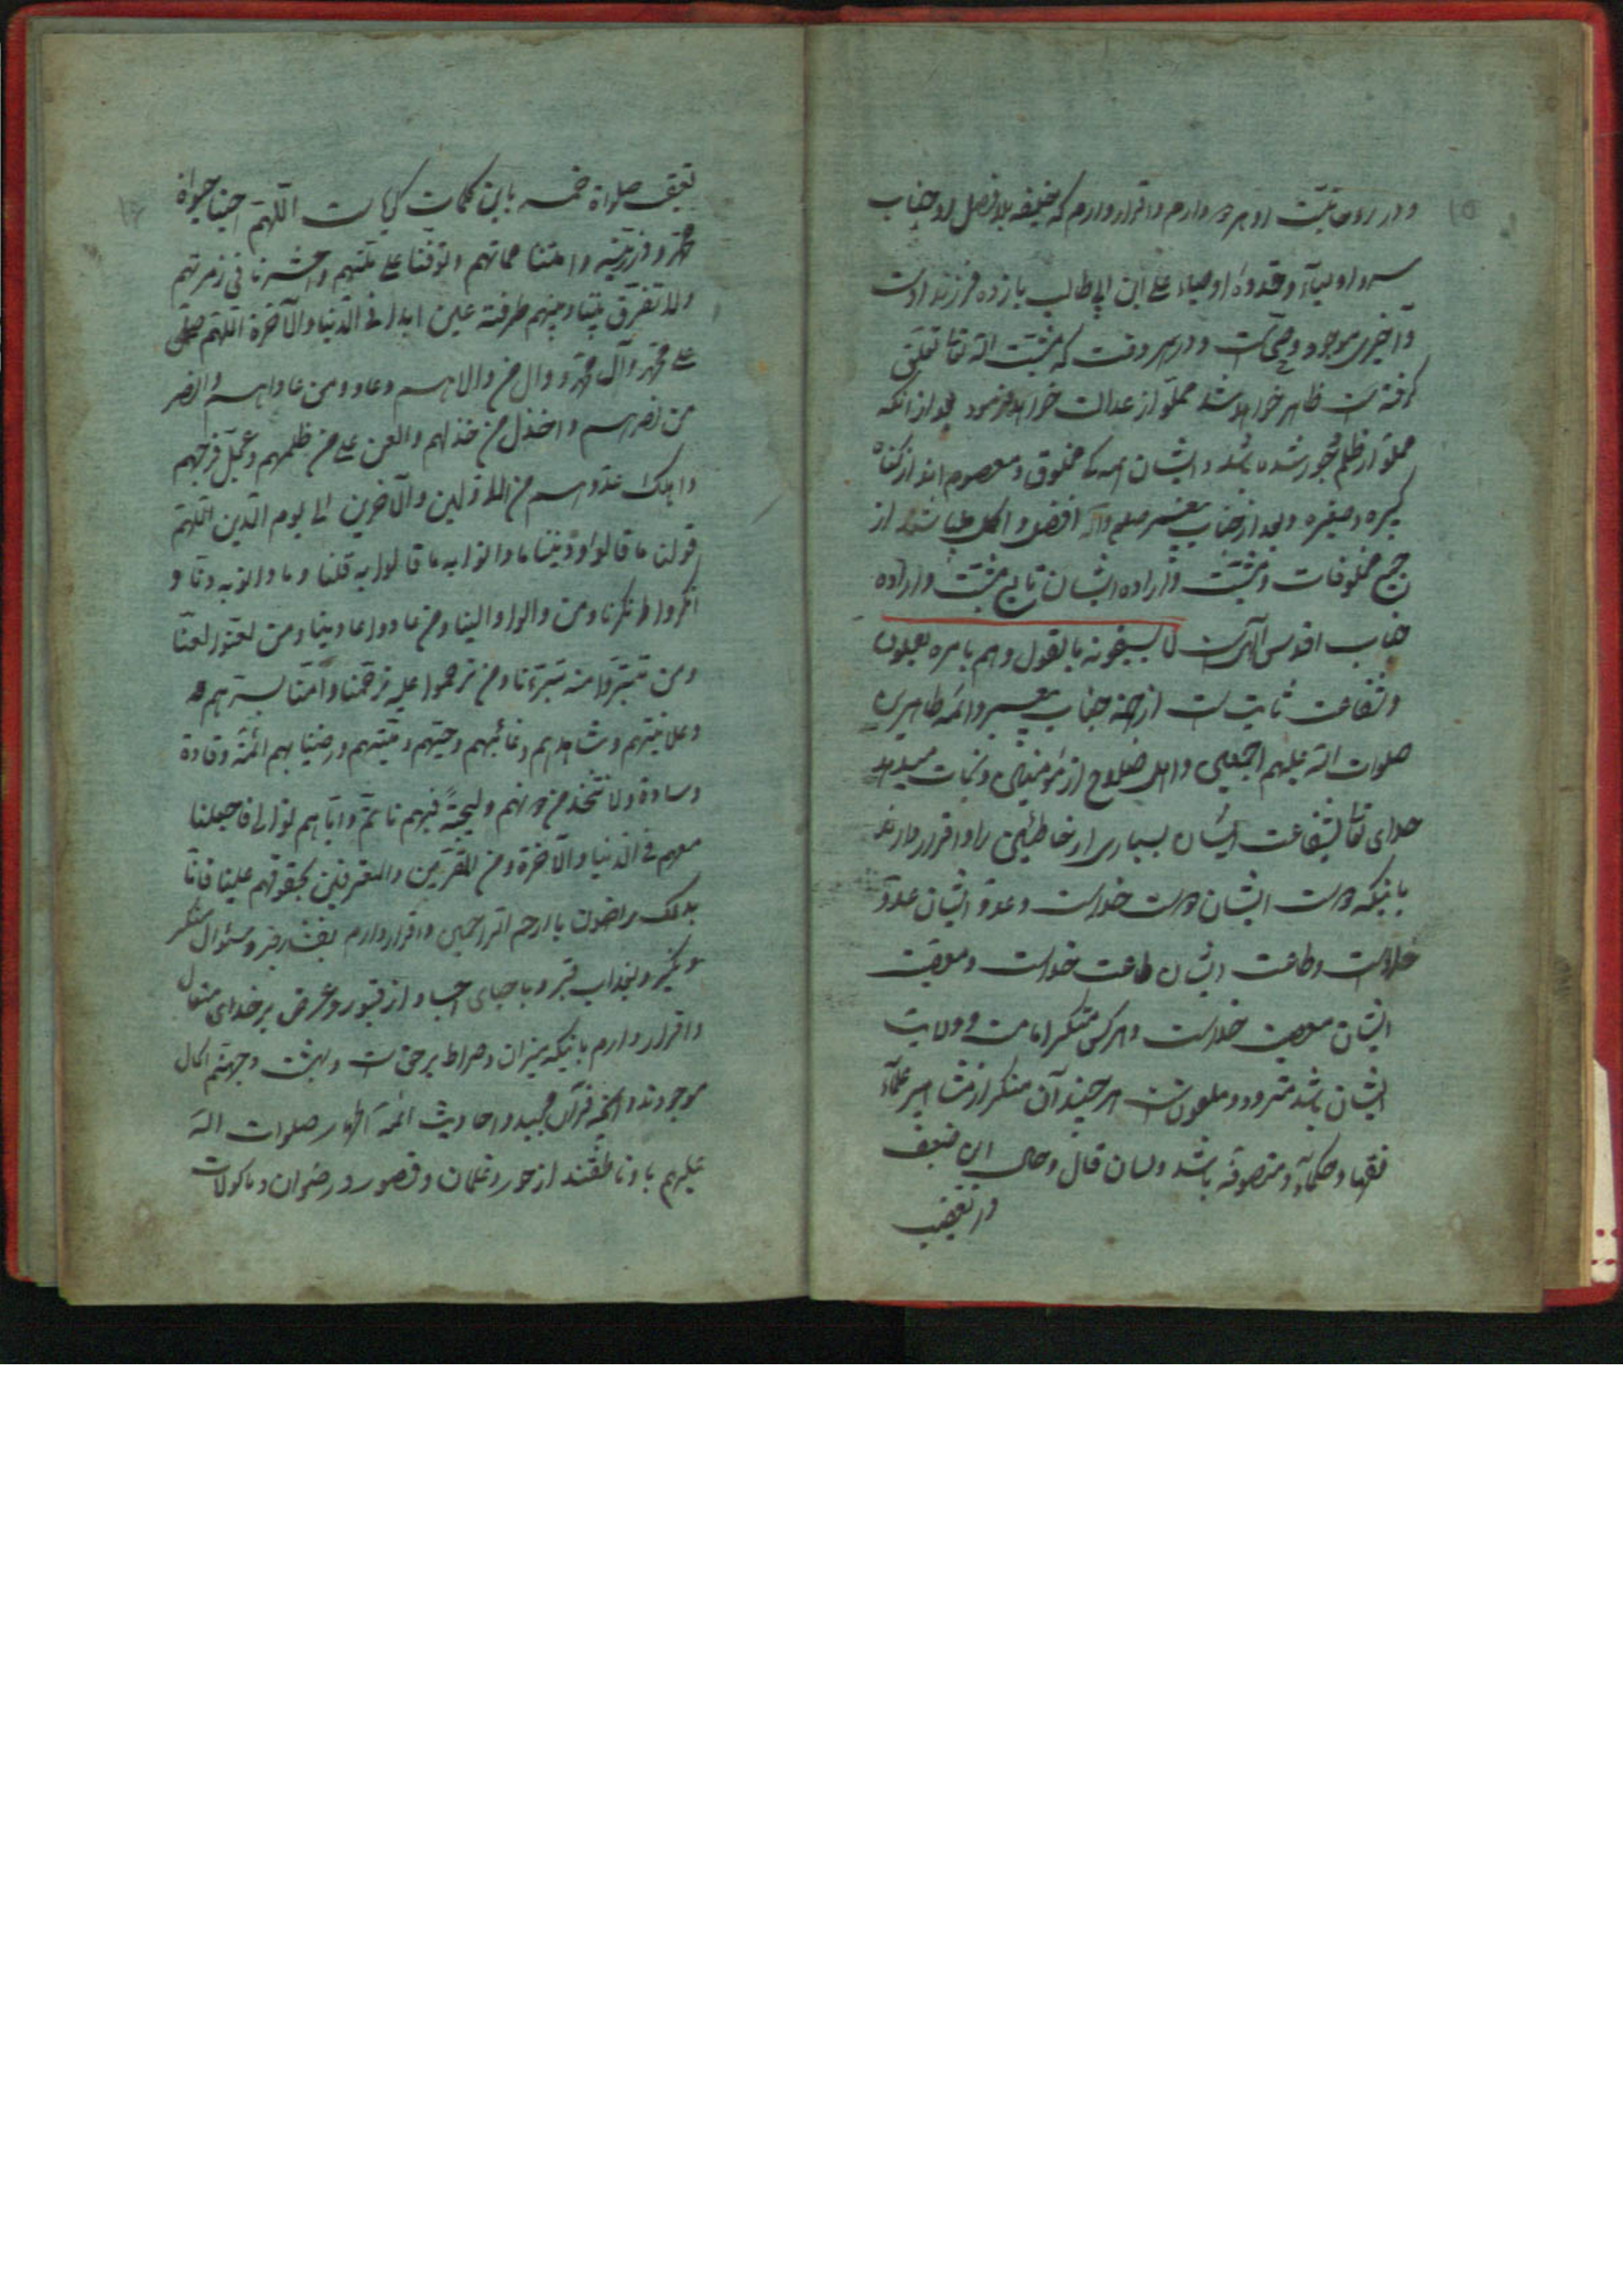 ۱۵
و در روحانیّت او هر دو دارم و اقرار دارم که خلیفه بلا فصل او جناب
سر اولیآء و قدوهٔ اوصیاء علی ابن ابی طالب یازده فرزند اوست
و آخری موجود و حیّ است و در هر وقت که مشیّت الله تعالی تعلّق
گرفته است ظاهر خواهد شد مملوّ از عدالت خواهد فرمود بعد از آنکه
مملوّ از ظلم و جور شده باشد و ایشان همه مخلوق و معصوم اند از گناه
کبیره و صغیره و بعد از جناب پیغمبر صلعم و آله افضل و اکمل میباشند از
جمیع مخلوقات و مشیّت و ارادهٔ ایشان تابع مشیّت و ارادهٔ
جناب اقدس الهی است لا یسبقونه بالقول و هم بامره یعملون
و شفاعت ثابت است از جهة جناب پیغمبر و ائمّه طاهرین
صلوات الله علیهم اجمعین و اهل صلاح از مؤمنین و نجات میدهد
خدای تعالی بشفاعت ایشان بسیاری از خاطئین را و اقرار دارند
باینکه دوست ایشان دوست خداست و عدوّ ایشان عدوّ
خداست و طاعت ایشان طاعت خداست و معصیت
ایشان معصیت خداست و هر کس منکر امامت و ولایت
ایشان باشد مردود و ملعون است هر چند آن منکر از مشاهیر علمآء
فقها و حکمآء و متصوفه باشد و لسان قال و حال این ضعیف
در تعقیب
۱۶
تعقیب صلواة خمسه باین کلمات گویاست اللّهمّ احینا حیواة
محمّد و ذرّیّته و امتنا مماتهم و توفّنا علی ملّتهم و احشرنا فی زمرتهم
ولا تفرّق بیننا و بینهم طرفة عین ابدا فی الدّنیا والآخرة اللّهمّ صلّ
علی محمّد و آل محمّد و وال من والاهم و عاد من عاداهم وانصر
من نصرهم و اخذل من خذلهم والعن علی من ظلمهم و عجّل فرجهم
و اهلک عدوّهم من الاوّلین والآخرین الی یوم الدّین اللّهمّ
قولنا ما قالوا و دیننا ما دانوا به ما قالوا به قلنا و ما دانوا به دنّا و
انکروا انکرنا و من والوا والینا و من عادوا عادینا و من لعنوا لعنّا
و من تبرّؤا منه تبرّءنا و من ترحّموا علیه ترحّمنا و آمنّا بسرّهم
و علانیتهم و شاهدهم و غائبهم و حیّهم و میّتهم و رضینا بهم ائمّة و قادة
و سادة ولا نتّخذ من دونهم ولیجةً فبهم ناتمّ و ایّاهم نوالی فاجعلنا
معهم فی الدّنیا والآخرة و من المقرّبین والمعترفین بحقوقهم علینا فانّا
بذلک راضون یا ارحم الرّاحمین و اقرار دارم بفشار قبر و سئوال منکر
و نکیر و بعذاب قبر و باحیای اجساد از قبور و عرض بر خدای متعال
و اقرار دارم باینکه میزان و صراط بر حقّ است و بهشت و جهنّم الحال
موجودند و آنچه قرآن مجید و احادیث ائمّه اطهار صلوات الله
علیهم باو ناطقند از حور و غلمان و قصور و رضوان و ماکولات